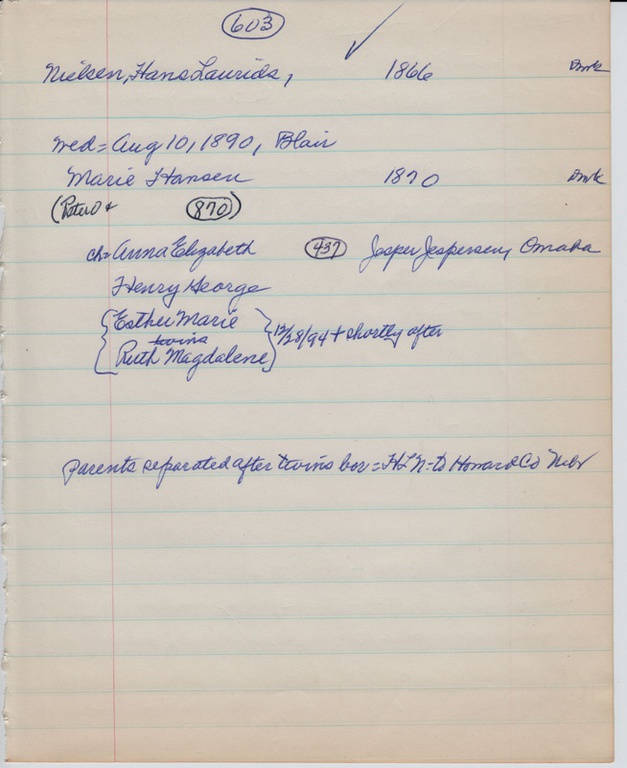 603
Nielsen, Hans Laurids, 1866 Dmk
Wed = Aug 10, 1890, Blair
Marie Hansen 1870 Dmk
(Peter O + 870)
ch = Anna Elizabeth 437 Jesper Jespersen, Omaha
Henry George
Esther Marie
twins 12/28/94 + shortly after
Ruth Magdalene
Parents separated after twins bor = H L N - to Howard Co Nebr